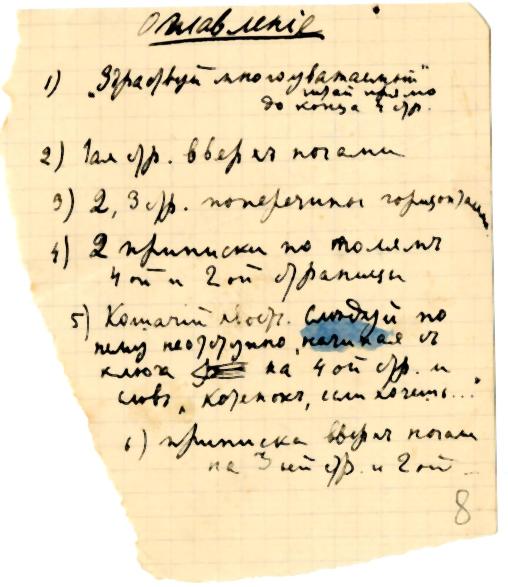 Оглавленіе
1) „Здравствуй многоуважаемый"
шпай прямо
до конца 4 стр.
2) 1ая стр. вверхъ ногами
3) 2, 3 стр. поперечины горизонтально
4) 2 приписки по полямъ
4ой и 2ой страницы
5) Кошачій хвостъ. Слѣдуй по
нему неотступно, начиная съ
клюка на 4ой стр. и
словъ „котенокъ, если хочешь..."
6) приписка вверхъ ногами
на 3ьей стр. и 2ой
8